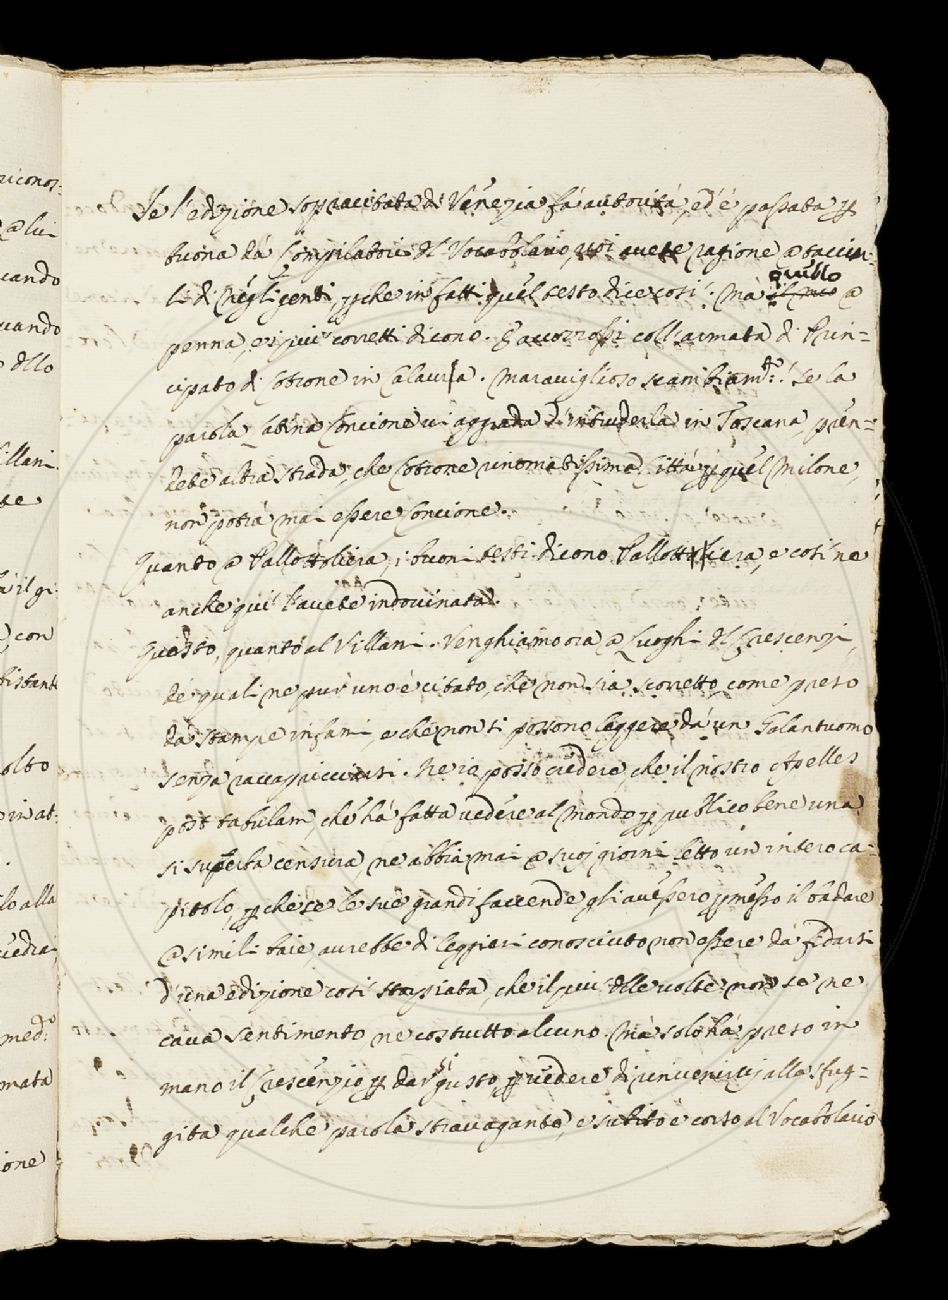 riconos=
a lu-
cando
uando
dllo
illani
te
a il gi-
con
distante
olto
o in at:
lo alla
vedra,
med.
mata
ione
Se l'edizione sopracitata di Venezia fá autoritá, ed é passata p
buona dá Compilatori dl Vocabolario, voi avete ragione a taccin-
li di Negligenti, p che in fatti quel testo dice cosí. Mà il mio quello a
penna, e i piú corretti dicono. E accozzossi coll'armata di Prin=
cipato di Cotrone in Calavria. Maraviglioso scambiam.to! Se la
parola latina Concione vi aggrada d'intruderla in Toscana, pren=
dete altra strada, che Cotrone rinomatissima Cittá p quel Milone,
non potrá mai essere Concione.
Quanto a Pallottoliera, i buoni testi dicono Pallottoliera, e cosí ne
anche quí l'avete indovinata.
Questo, quanto al Villani. Venghiamo ora a Luoghi dl Crescenzi,
de quali ne pur uno é citato, che non sia scorretto, come preso
dá stampe infami, e che non si possono leggere dá un Galantuomo
senza raccapricciarsi. Ne io posso credere, che il nostro Apelles
post tabulam, ché há fatta vedere al mondo p publico bene una
sí superba censura, ne abbia mai a suoj giorni letto un intero ca=
pitolo, p che se le sue grandi faccende gli avessero pmesso il badare
a simili baie, avrebbe di leggieri conosciuto non essere dá fidarsi
d'una edizione cosí storpiata, che il piú dlle volte non se ne
cava sentimento ne costrutto alcuno. Mà solo há preso in
mano il Crescenzio p darsi gusto, p vedere di rinvenirvi alla sfug=
gita qualche parola stravagante, e subito é corso al Vocabolario